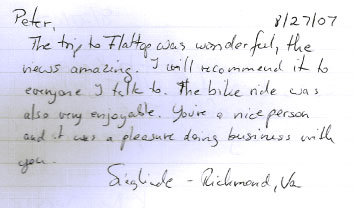 Peter, 8/27/07
The trip to Flattop was wonderful, the
views amazing. I will recommend it to
everyone I talk to. The bike ride was
also very enjoyable. You're a nice person
and it was a pleasure doing business with
you.
Sieglinde - Richmond, Va